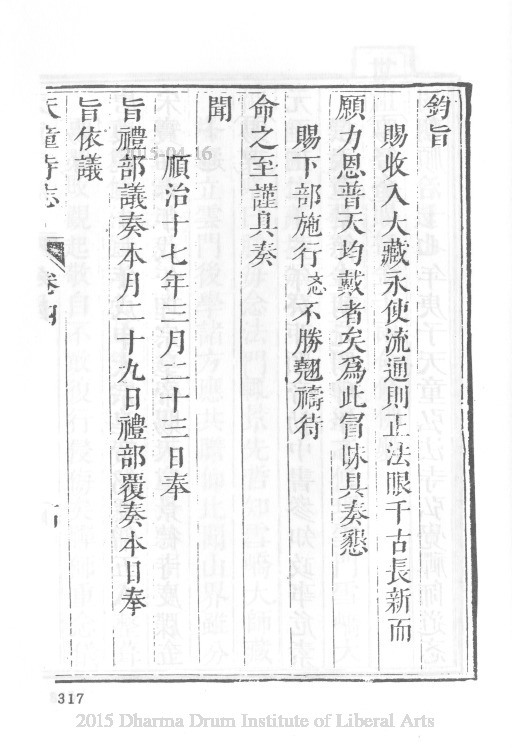 鈞旨
賜收入大藏永使流通則正法眼千古長新而
願力恩普天均戴者矣爲此冒昧具奏懇
賜下部施行忞不勝翹禱待
命之至謹具奏
聞
順治十七年三月二十三日奉
旨禮部議奏本月二十九日禮部覆奏本日奉
旨依議
天童寺志
卷四
317
2015-04-16
2015 Dharma Drum Institute of Liberal Arts